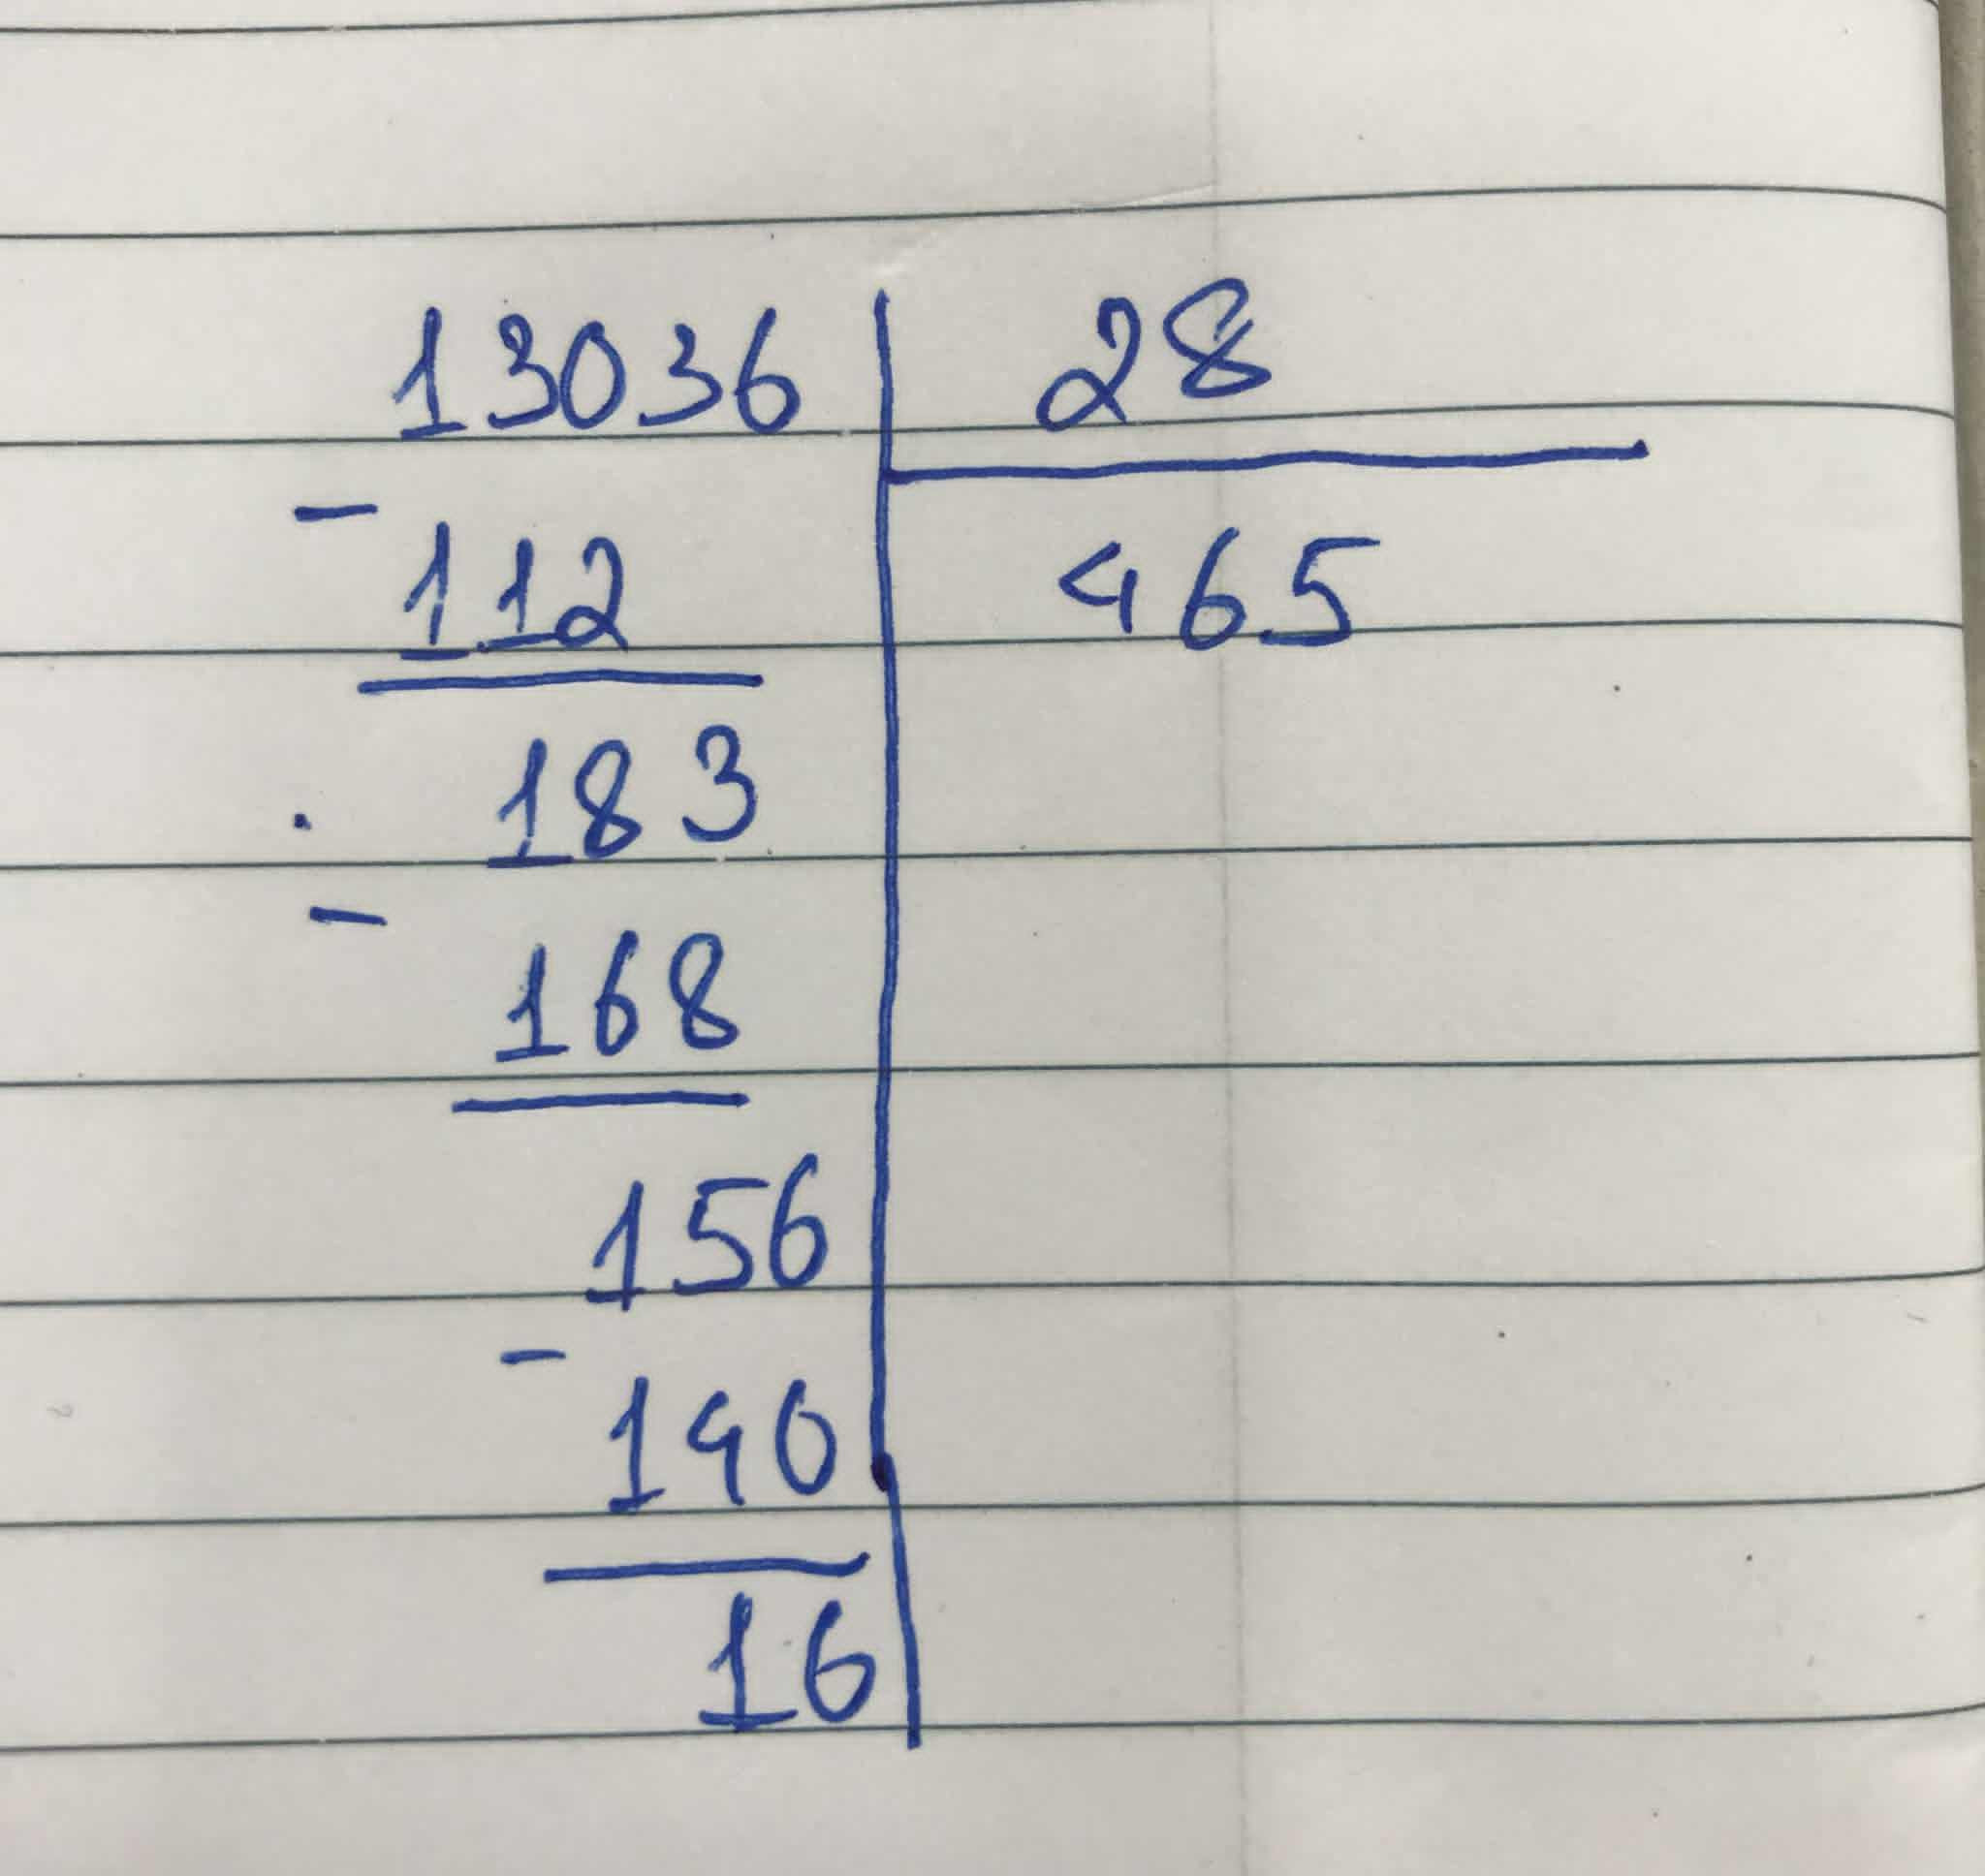 13036 28
- 112 465
183
- 168
156
- 140
16